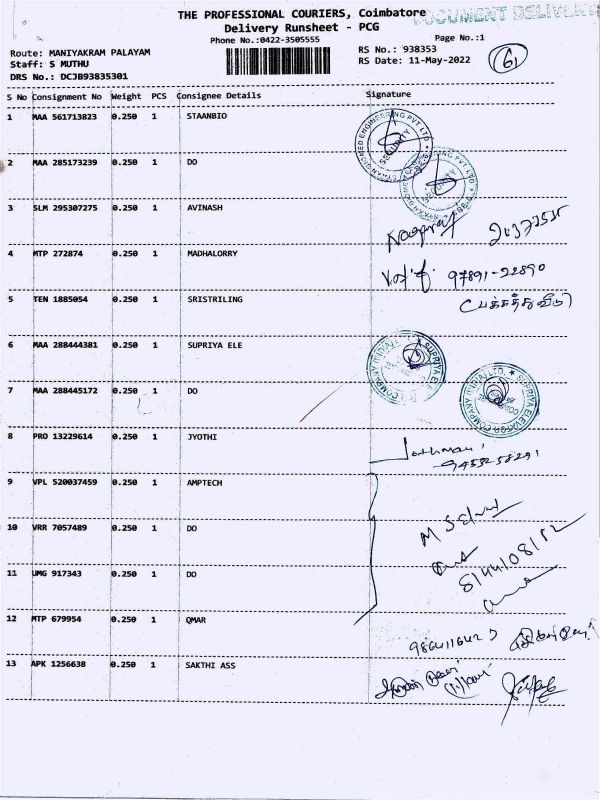 THE PROFESSIONAL COURIERS, Coimbatore
DOCUMENT DELIVER
Delivery Runsheet - PCG
Phone No.:0422-3505555
Page No.:1
Route: MANIYAKRAM PALAYAM
RS No.: 938353
Staff: S MUTHU
RS Date: 11-May-2022
6
DRS No.: DCJB93835301
S No Consignment No Weight PCS Consignee Details Signature
1 MAA 561713823 0.250 1 STAANBIO
SECURITY
2 MAA 285173239 0.250 1 DO
3 SLM 295307275 0.250 1 AVINASH
4 MTP 272874 0.250 1 MADHALORRY
97891-22890
5 TEN 1885054 0.250 1 SRISTRILING
6 MAA 288444381 0.250 1 SUPRIYA ELE
7 MAA 288445172 0.250 1 DO
SUPRIYA ELEVATOR COMPANY (INDIA) LTD.
8 PRO 13229614 0.250 1 JYOTHI
9 VPL 520037459 0.250 1 AMPTECH
10 VRR 7057489 0.250 1 DO
11 UMG 917343 0.250 1 DO
12 MTP 679954 0.250 1 QMAR
13 APK 1256638 0.250 1 SAKTHI ASS